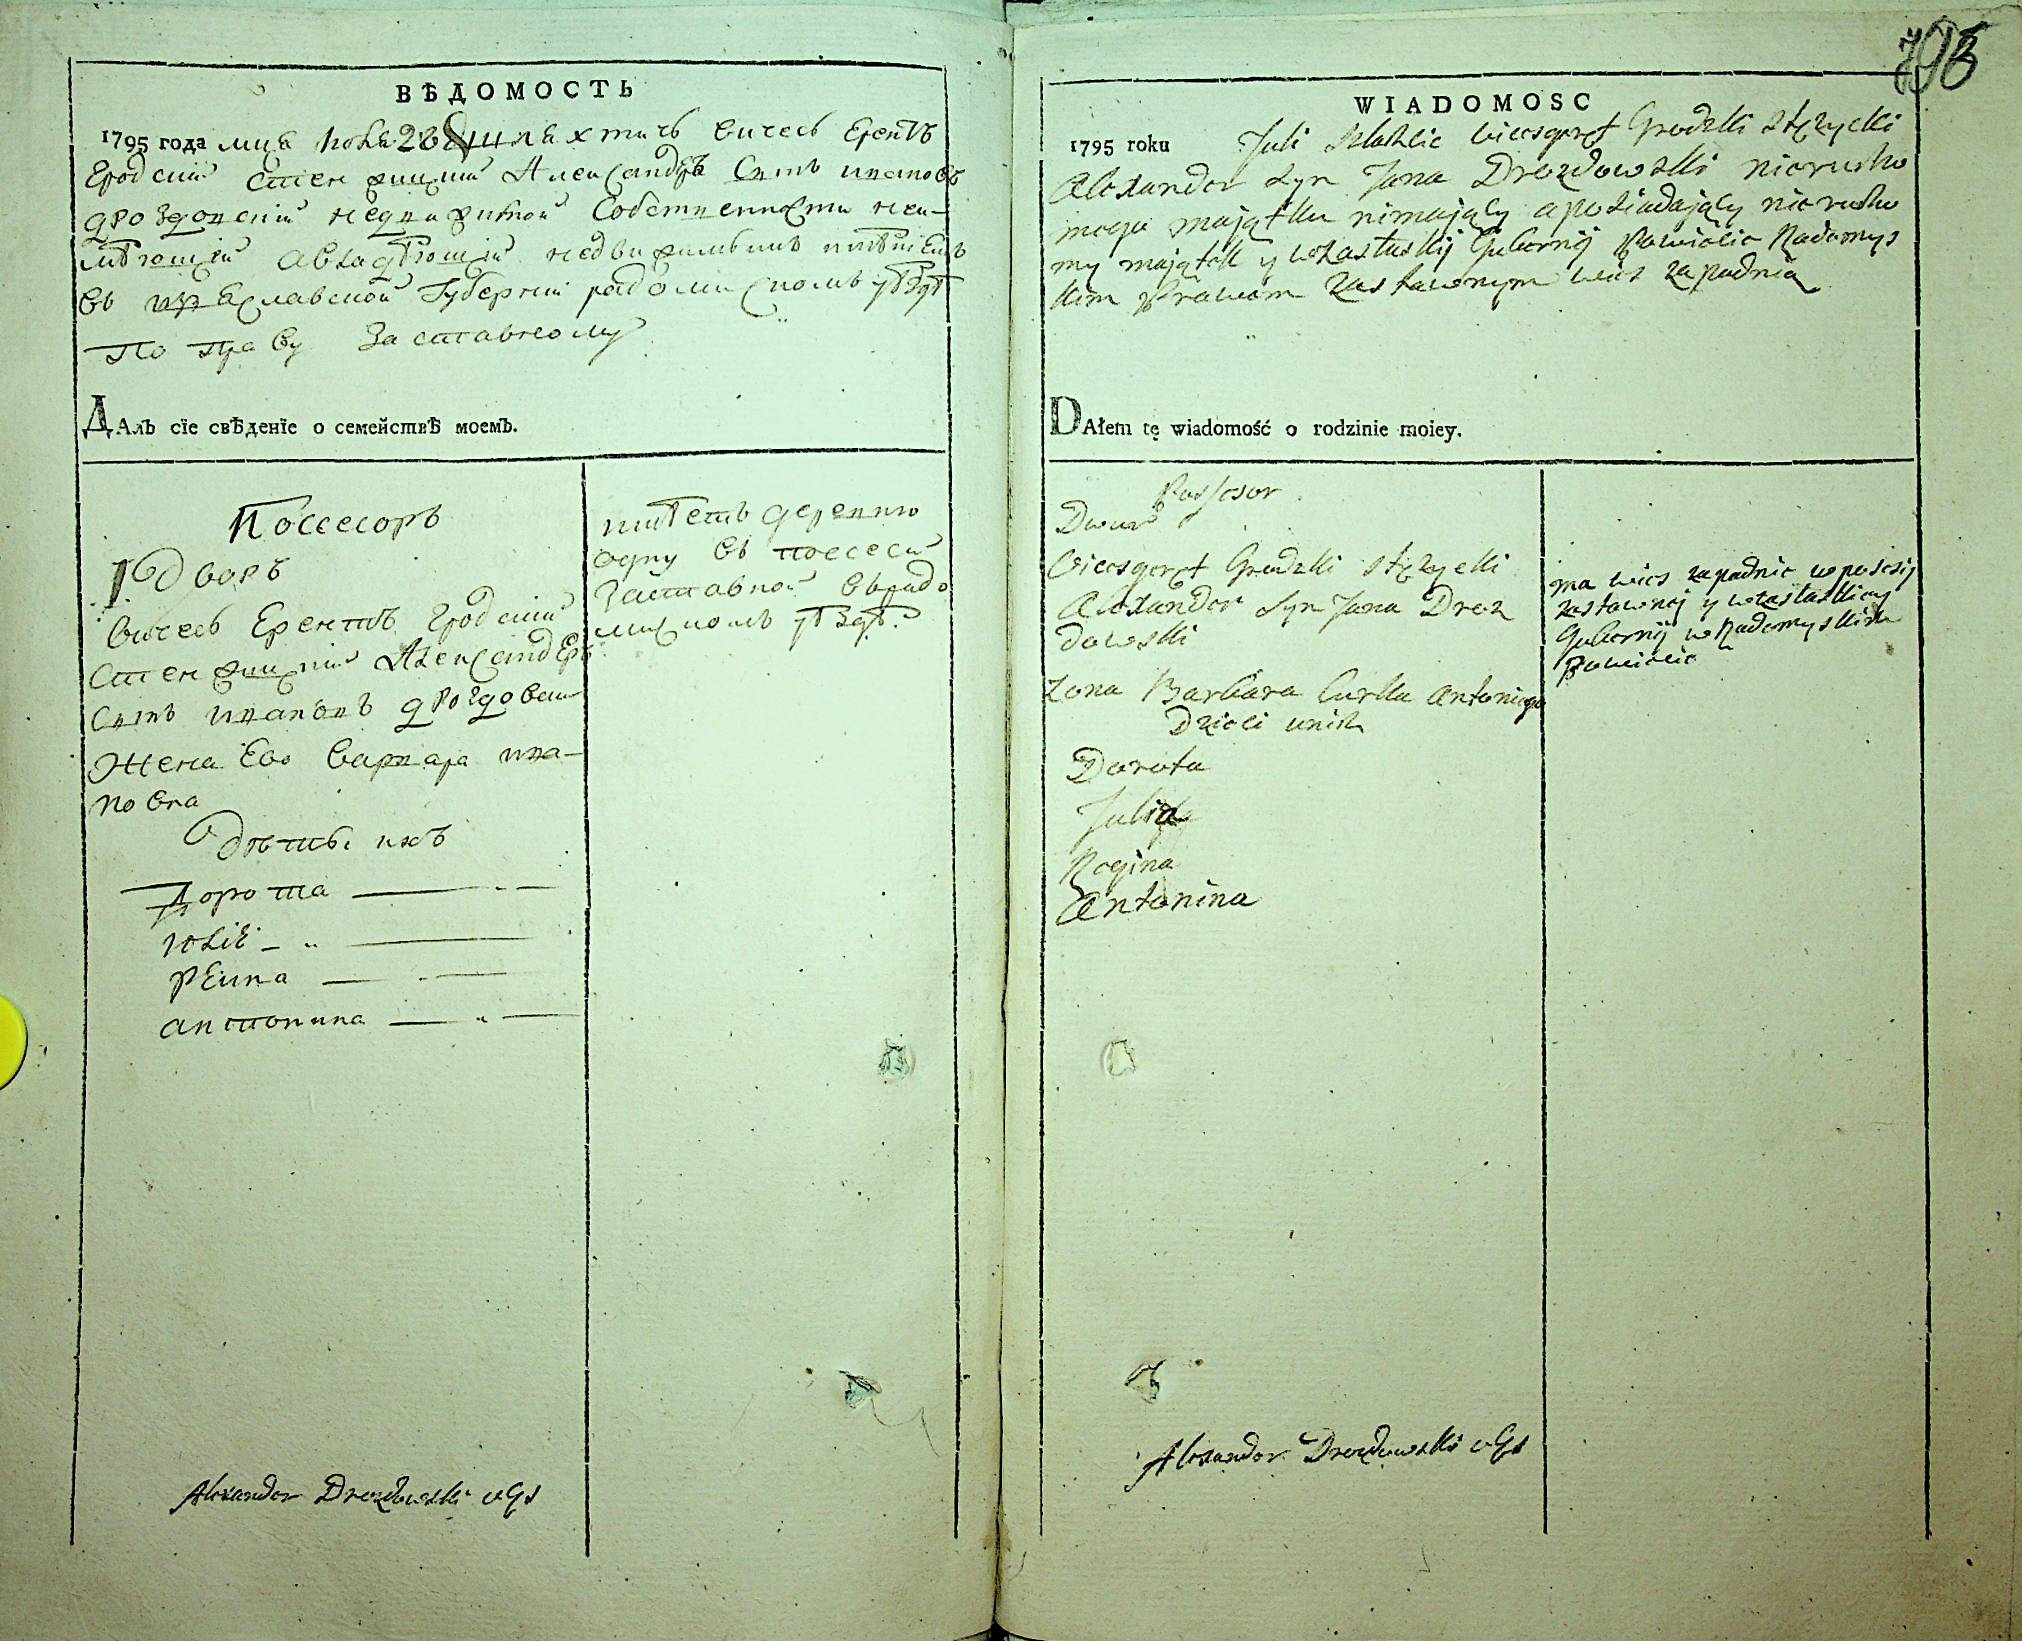 ВѢДОМОСТЬ
1795 года мця июля 28 шляхтичъ вицесъ Ерентъ
Гродскій Стенжицкій Александеръ Сынъ ивановъ
дроздовскій недвижимой Собственности неи-
мѣющій авладѣющій недвижимымъ имѣніемъ
въ изяславской Губерніи радомискомъ уѣздѣ
По праву Заставному
ДАлъ сїе свѣденїе о семействѣ моемъ.
Поссесоръ
1 Дворъ
вицесъ Ерентъ Гродскій
Стенжицкій Александеръ
Сынъ ивановъ дроздовски
Жена Ево варвара ива-
новна
Дѣти ихъ
Дорота
Юлiѣ
РЕина
антонина
имѣетъ деревню
одну въ посесси
Заставной въ радо
мискомъ уѣздѣ.
Alexander Drozdowski vGs
798
WIADOMOSC
1795 roku Juli Szlachcic Vicesgeręt Grodzki Stężycki
Alexander Syn Jana Drozdowski nieruho
mego majątku nimający aposiadający nieruho
my majątek y wzasłaskij Gubernij Powiecie Radomys
kim Prawem zastawnym wies zapadnią
DAłem tę wiadomość o rodzinie moiey.
Possesor
Dwur
Vicesgeręt Grodzki Stężycki
Alexander Syn Jana Droz
dowski
Zona Barbara Curka Antoniego
Dzieci unich
Dorota
Julia
Regina
Antonina
ma wies zapadnie w posesij
zastawnej y wzasłaskiey
Gubernij w Radomyskim
Powiecie
Alexander Drozdowski vGs